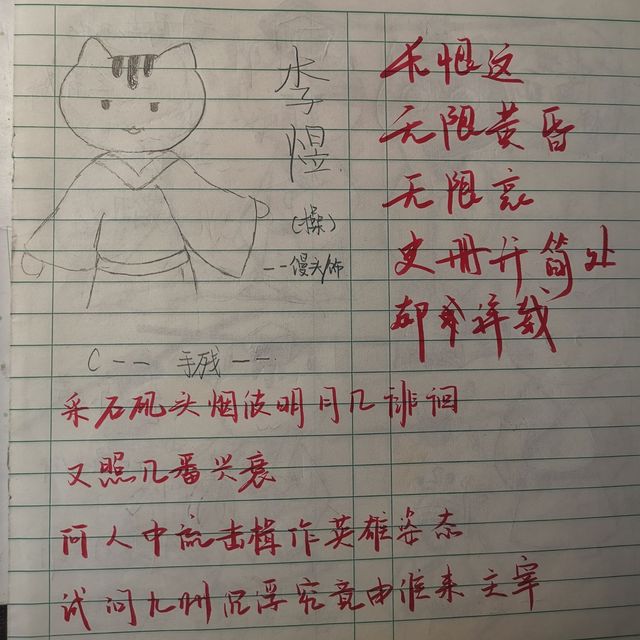 李煜
(操)
--馒头
C -- 手残 --
长恨这
无限黄昏
无限哀
史册开简处
都 详载
采石矶头烟波明月几徘徊
又照几番兴衰
何人中流击楫作英雄姿态
试问九州沉浮究竟由谁来主宰